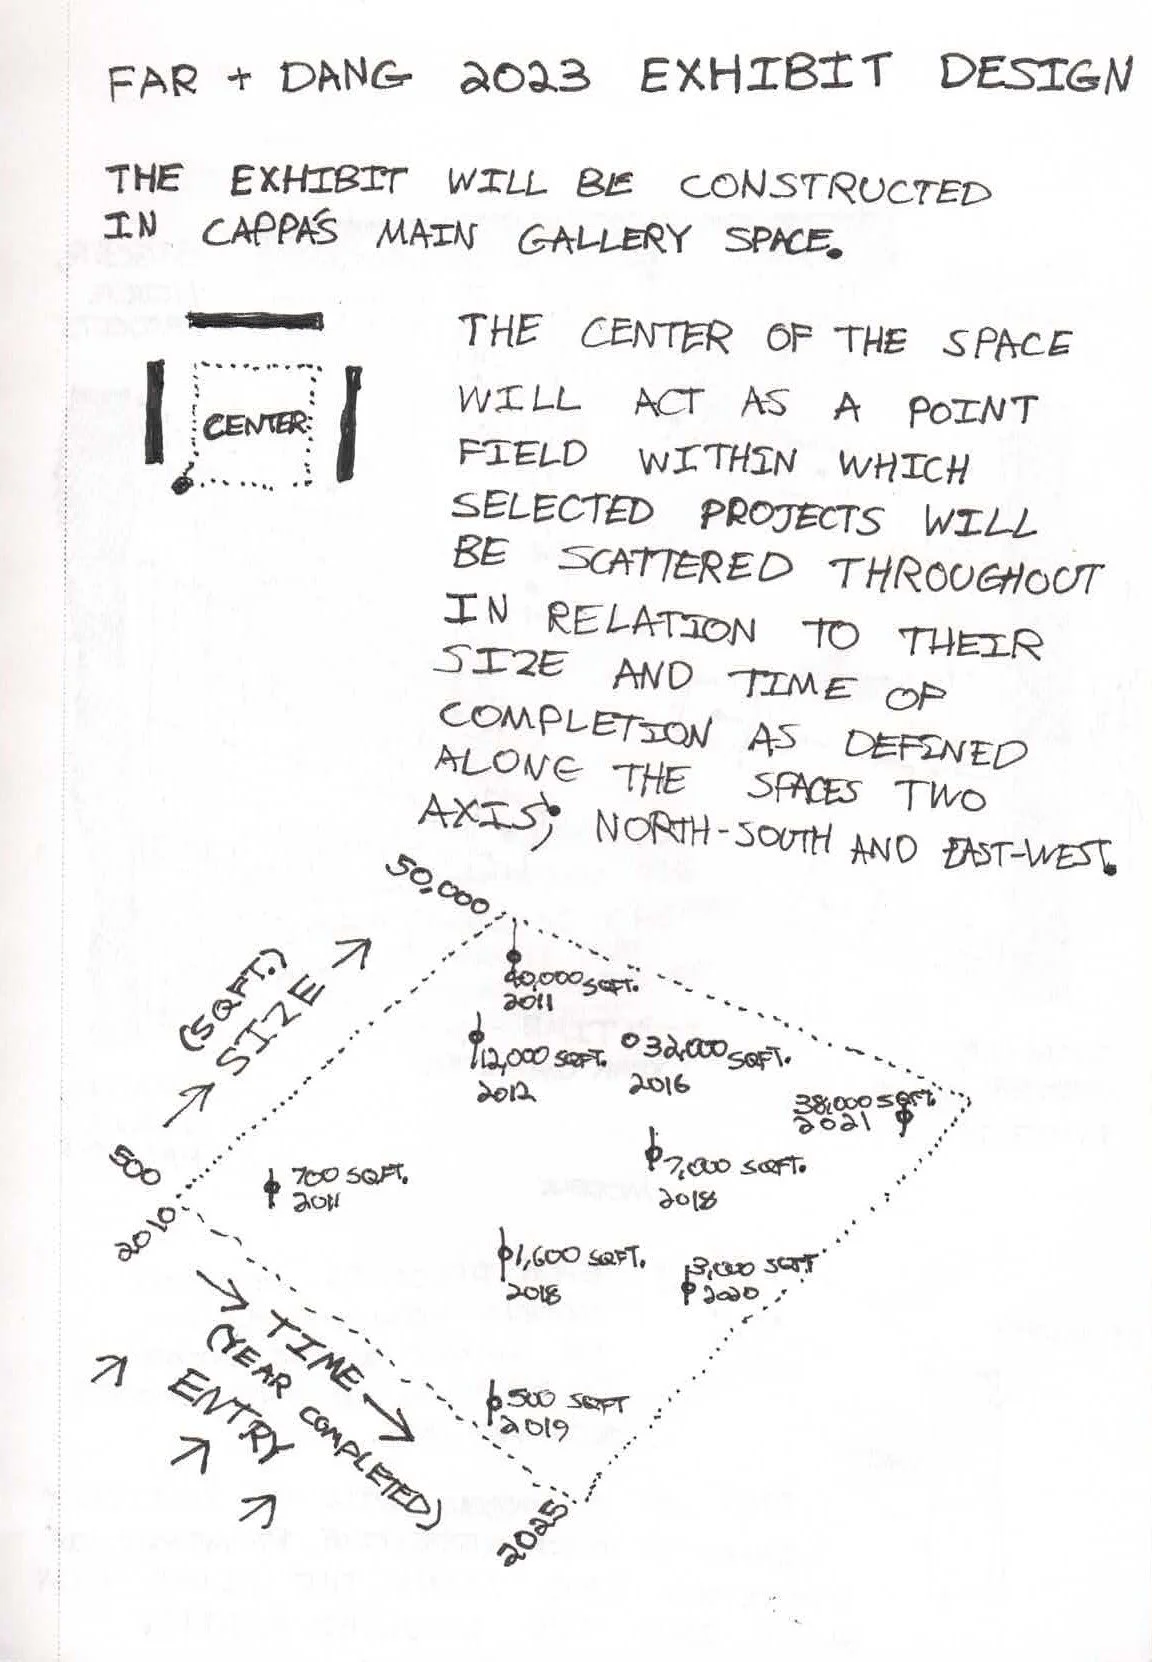 FAR + DANG 2023 EXHIBIT DESIGN
THE EXHIBIT WILL BE CONSTRUCTED
IN CAPPA'S MAIN GALLERY SPACE.
CENTER
THE CENTER OF THE SPACE
WILL ACT AS A POINT
FIELD WITHIN WHICH
SELECTED PROJECTS WILL
BE SCATTERED THROUGHOUT
IN RELATION TO THEIR
SIZE AND TIME OF
COMPLETION AS DEFINED
ALONG THE SPACES TWO
AXIS; NORTH-SOUTH AND EAST-WEST.
50,000
(SQFT.)
SIZE
500
2010
40,000 SQFT.
2011
12,000 SQFT.
2012
32,000 SQFT.
2016
38,000 SQFT.
2021
700 SQFT.
2011
7,000 SQFT.
2018
1,600 SQFT.
2018
3,000 SQFT
2020
500 SQFT
2019
TIME
(YEAR COMPLETED)
ENTRY
2025